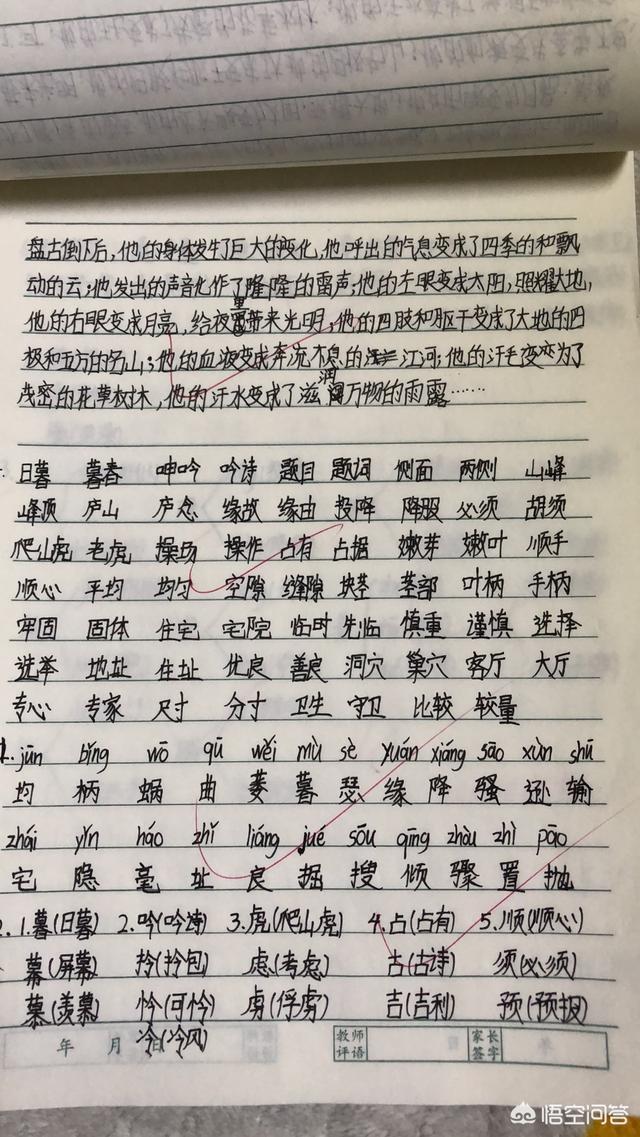 盘古倒下后,他的身体发生了巨大的变化,他呼出的气息变成了四季的和飘
动的云;他发出的声音化作了隆隆的雷声;他的左眼变成太阳,照耀大地,
他的右眼变成月亮,给夜里带来光明;他的四肢和躯干变成了大地的四
极和五方的名山;他的血液变成奔流不息的江河;他的汗毛变为了
茂密的花草树木,他的汗水变成了滋润万物的雨露……
日暮 暮春 呻吟 吟诗 题目 题词 侧面 两侧 山峰
峰顶 庐山 庐念 缘故 缘由 投降 降服 必须 胡须
爬山虎 老虎 操场 操作 占有 占据 嫩芽 嫩叶 顺手
顺心 平均 均匀 空隙 缝隙 块茎 茎部 叶柄 手柄
牢固 固体 住宅 宅院 临时 光临 慎重 谨慎 选择
选举 地址 住址 优良 善良 洞穴 巢穴 客厅 大厅
专心 专家 尺寸 分寸 卫生 守卫 比较 较量
1. jūn bǐng wō qū wěi mù sè yuán xiáng sāo xùn shū
均 柄 蜗 曲 萎 暮 瑟 缘 降 骚 逊 输
zhái yǐn háo zhǐ liáng jué sōu qīng zhòu zhì pāo
宅 隐 毫 址 良 掘 搜 倾 骤 置 抛
2. 1.暮(日暮) 2.吟(吟诗) 3.虎(爬山虎) 4.占(占有) 5.顺(顺心)
幕(屏幕) 拎(拎包) 虑(考虑) 古(古诗) 须(必须)
慕(羡慕) 怜(可怜) 虏(俘虏) 吉(吉利) 预(预报)
冷(冷风)
年 月 日 教师评语 家长签字
悟空问答